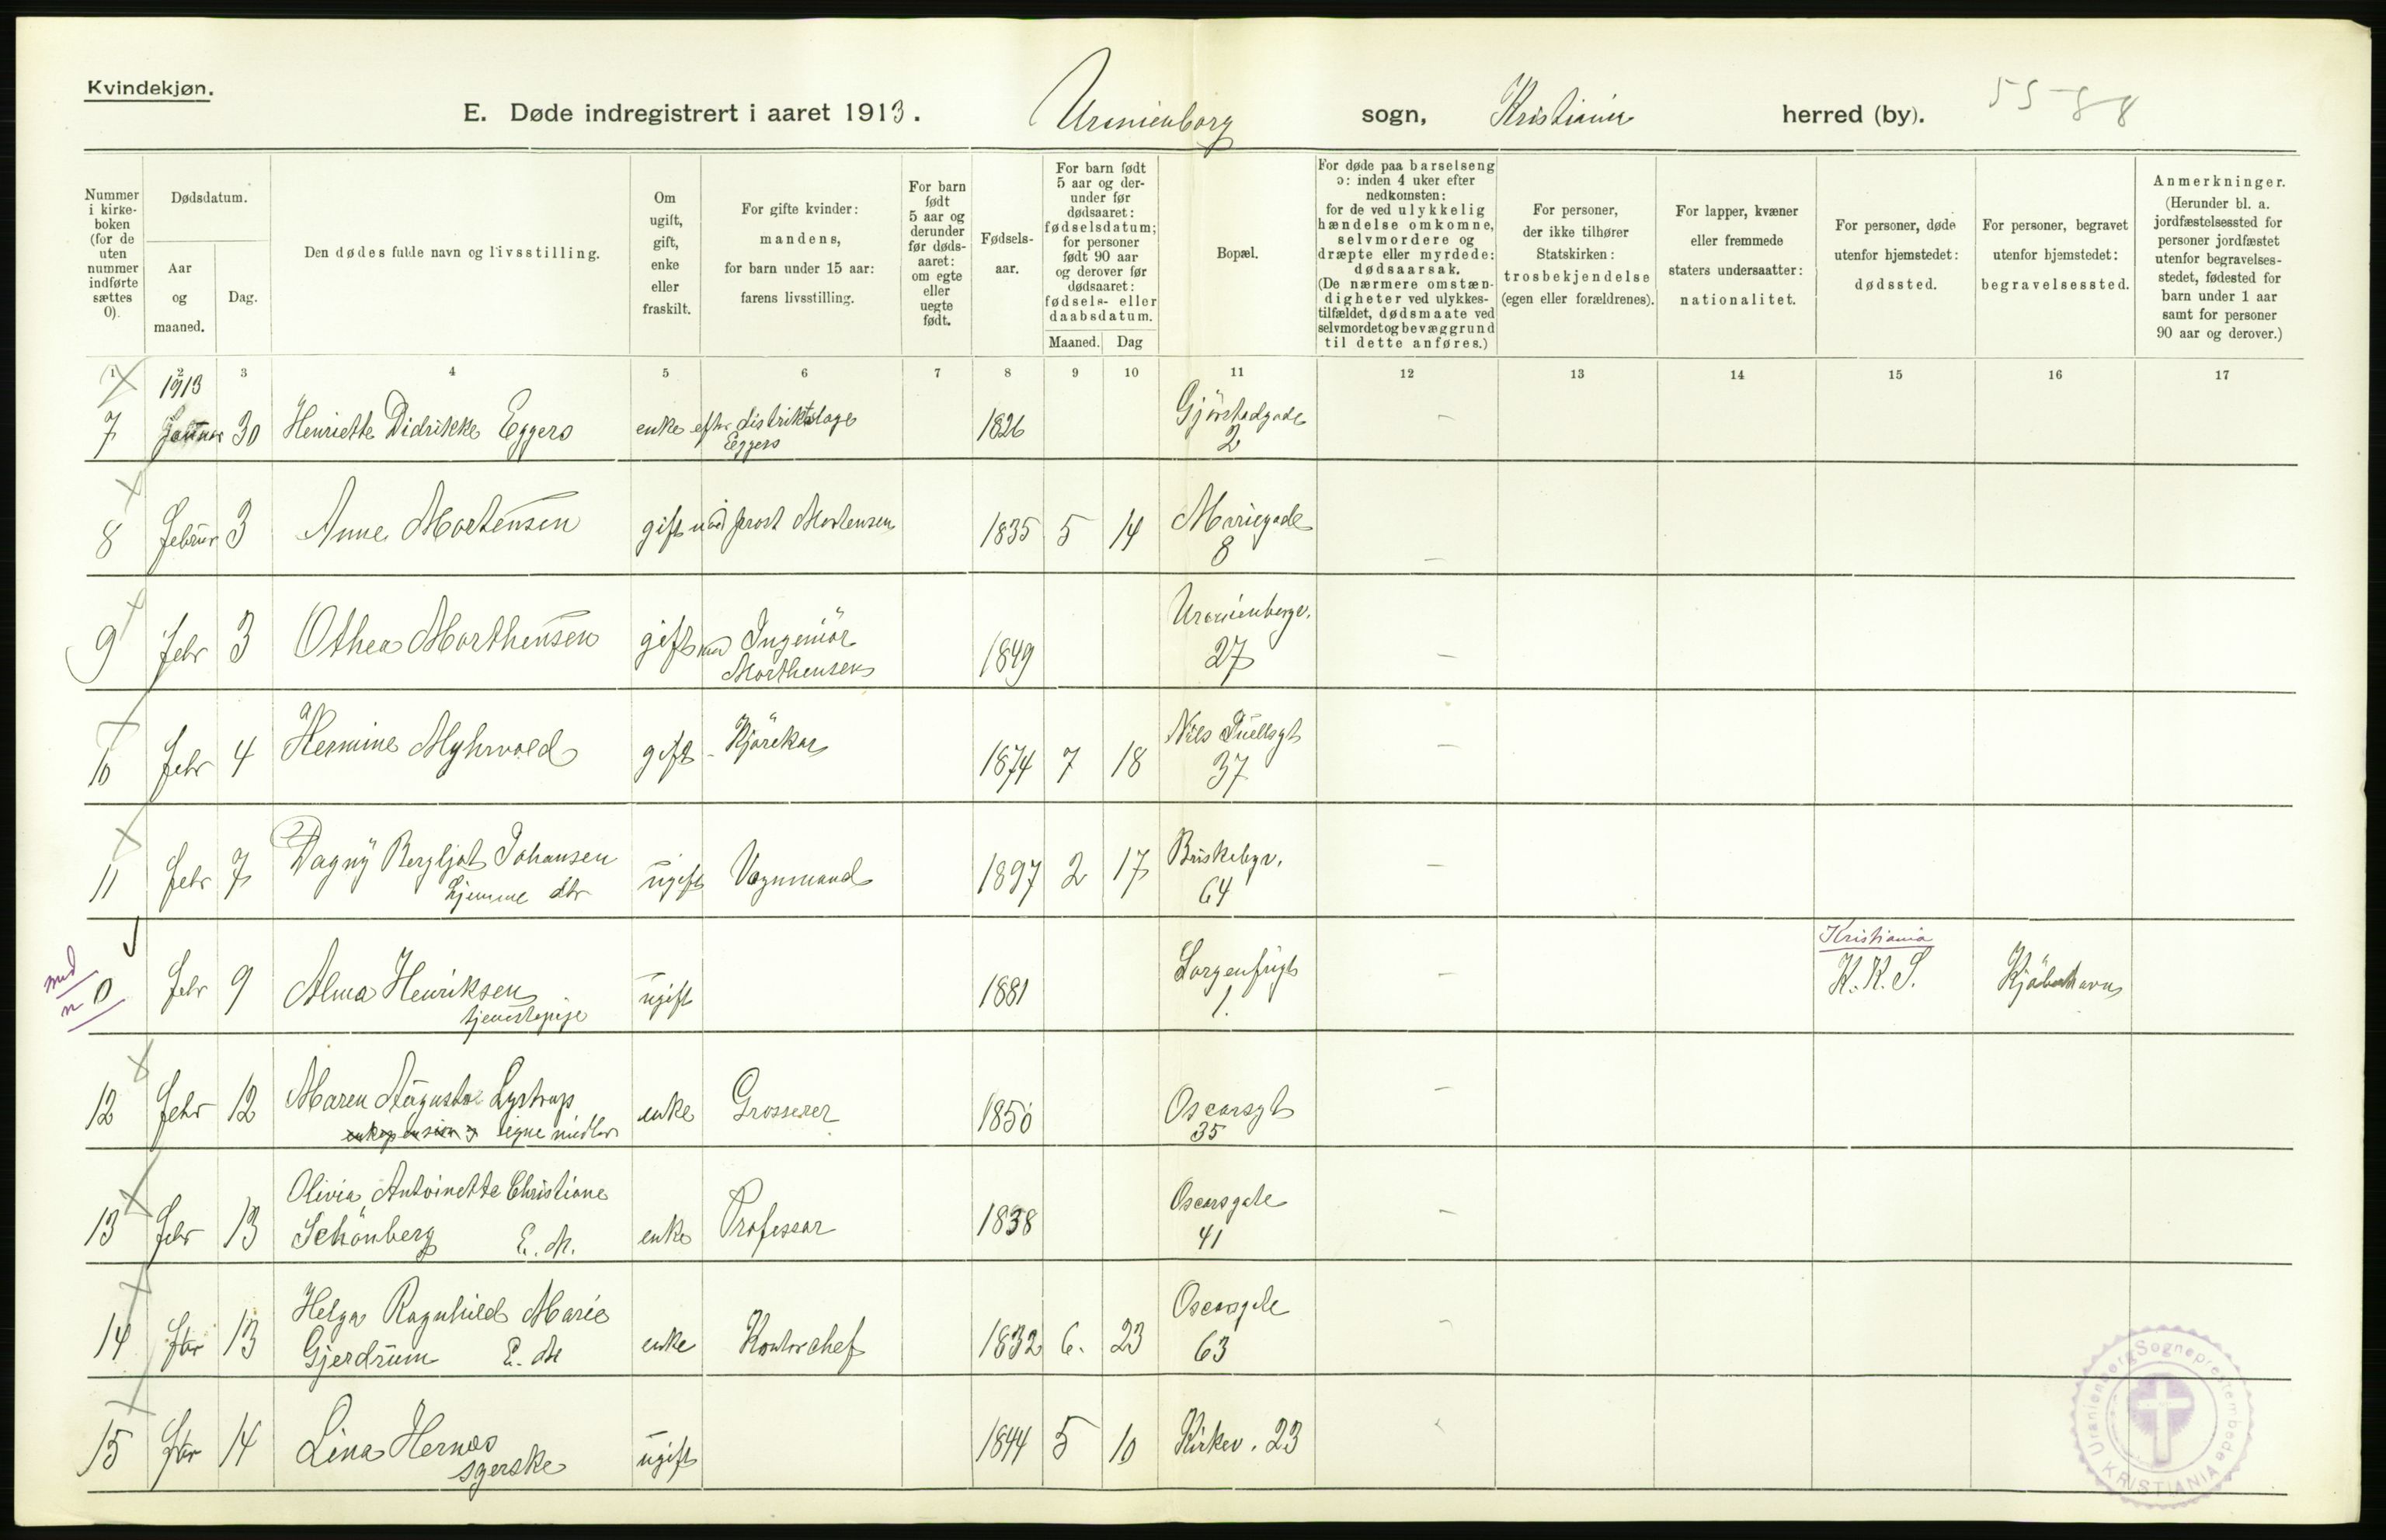 Kvindekjøn.
E. Døde indregistrert i aaret 1913. Uranienborg sogn, Kristiania herred (by). 5588
Nummer i kirke-boken (for de uten nummer indførte sættes 0).
Dødsdatum.
Aar og maaned.
Dag.
Den dødes fulde navn og livsstilling.
Om ugift, gift, enke eller fraskilt.
For gifte kvinder: mandens, for barn under 15 aar: farens livsstilling.
For barn født 5 aar og derunder før døds-aaret: om egte eller uegte født.
Fødsels-aar.
For barn født 5 aar og der-under før dødsaaret: fødselsdatum; for personer født 90 aar og derover før dødsaaret: fødsels- eller daabsdatum.
Maaned. Dag
Bopæl.
For døde paa barselseng ɔ: inden 4 uker efter nedkomsten: for de ved ulykkelig hændelse omkomne, selvmordere og dræpte eller myrdede: dødsaarsak. (De nærmere omstæn-digheter ved ulykkes-tilfældet, dødsmaate ved selvmordet og bevæggrund til dette anføres.)
For personer, der ikke tilhører Statskirken: trosbekjendelse (egen eller forældrenes).
For lapper, kvæner eller fremmede staters undersaatter: nationalitet.
For personer, døde utenfor hjemstedet: dødssted.
For personer, begravet utenfor hjemstedet: begravelsessted.
Anmerkninger. (Herunder bl. a. jordfæstelsessted for personer jordfæstet utenfor begravelses-stedet, fødested for barn under 1 aar samt for personer 90 aar og derover.)
1 2 3 4 5 6 7 8 9 10 11 12 13 14 15 16 17
1913
7 Januar 30 Henriette Didrikke Eggers enke efter distriktslæge Eggers 1826 Gjörstadgade 2 –
8 Februar 3 Anne Mortensen gift med prost Mortensen 1835 5 14 Mariegade 8 –
9 Febr 3 Othea Morthensen gift med Ingeniör Morthensen 1849 Uranienborgv. 27 –
10 Febr 4 Hermine Myhrvold gift - Kjörekar 1874 7 18 Nils Juellsgt 37 –
11 Febr 7 Dagny Bergljot Johansen hjemme dtr ugift Vognmand 1897 2 17 Briskebyv. 64 –
0 Febr 9 Alma Henriksen tjenestepige ugift 1881 Sorgenfrigt 1. – Kristiania K.K.S. Kjöbenhavn
12 Febr 12 Maren Augusta Lystrup enkepension og egne midler enke Grosserer 1850 Oscarsgt 35 –
13 Febr 13 Olivia Antoinette Christiane Schönberg E. M. enke Professor 1838 Oscarsgate 41 –
14 Febr 13 Helga Ragnhild Marie Gjerdrum E. M enke Kontorchef 1832 6. 23 Oscarsgate 63 –
15 Febr 14 Lina Hernæs syerske ugift 1844 5 10 Kirkev. 23
Uranienborg Sogneprestembede
KRISTIANIA